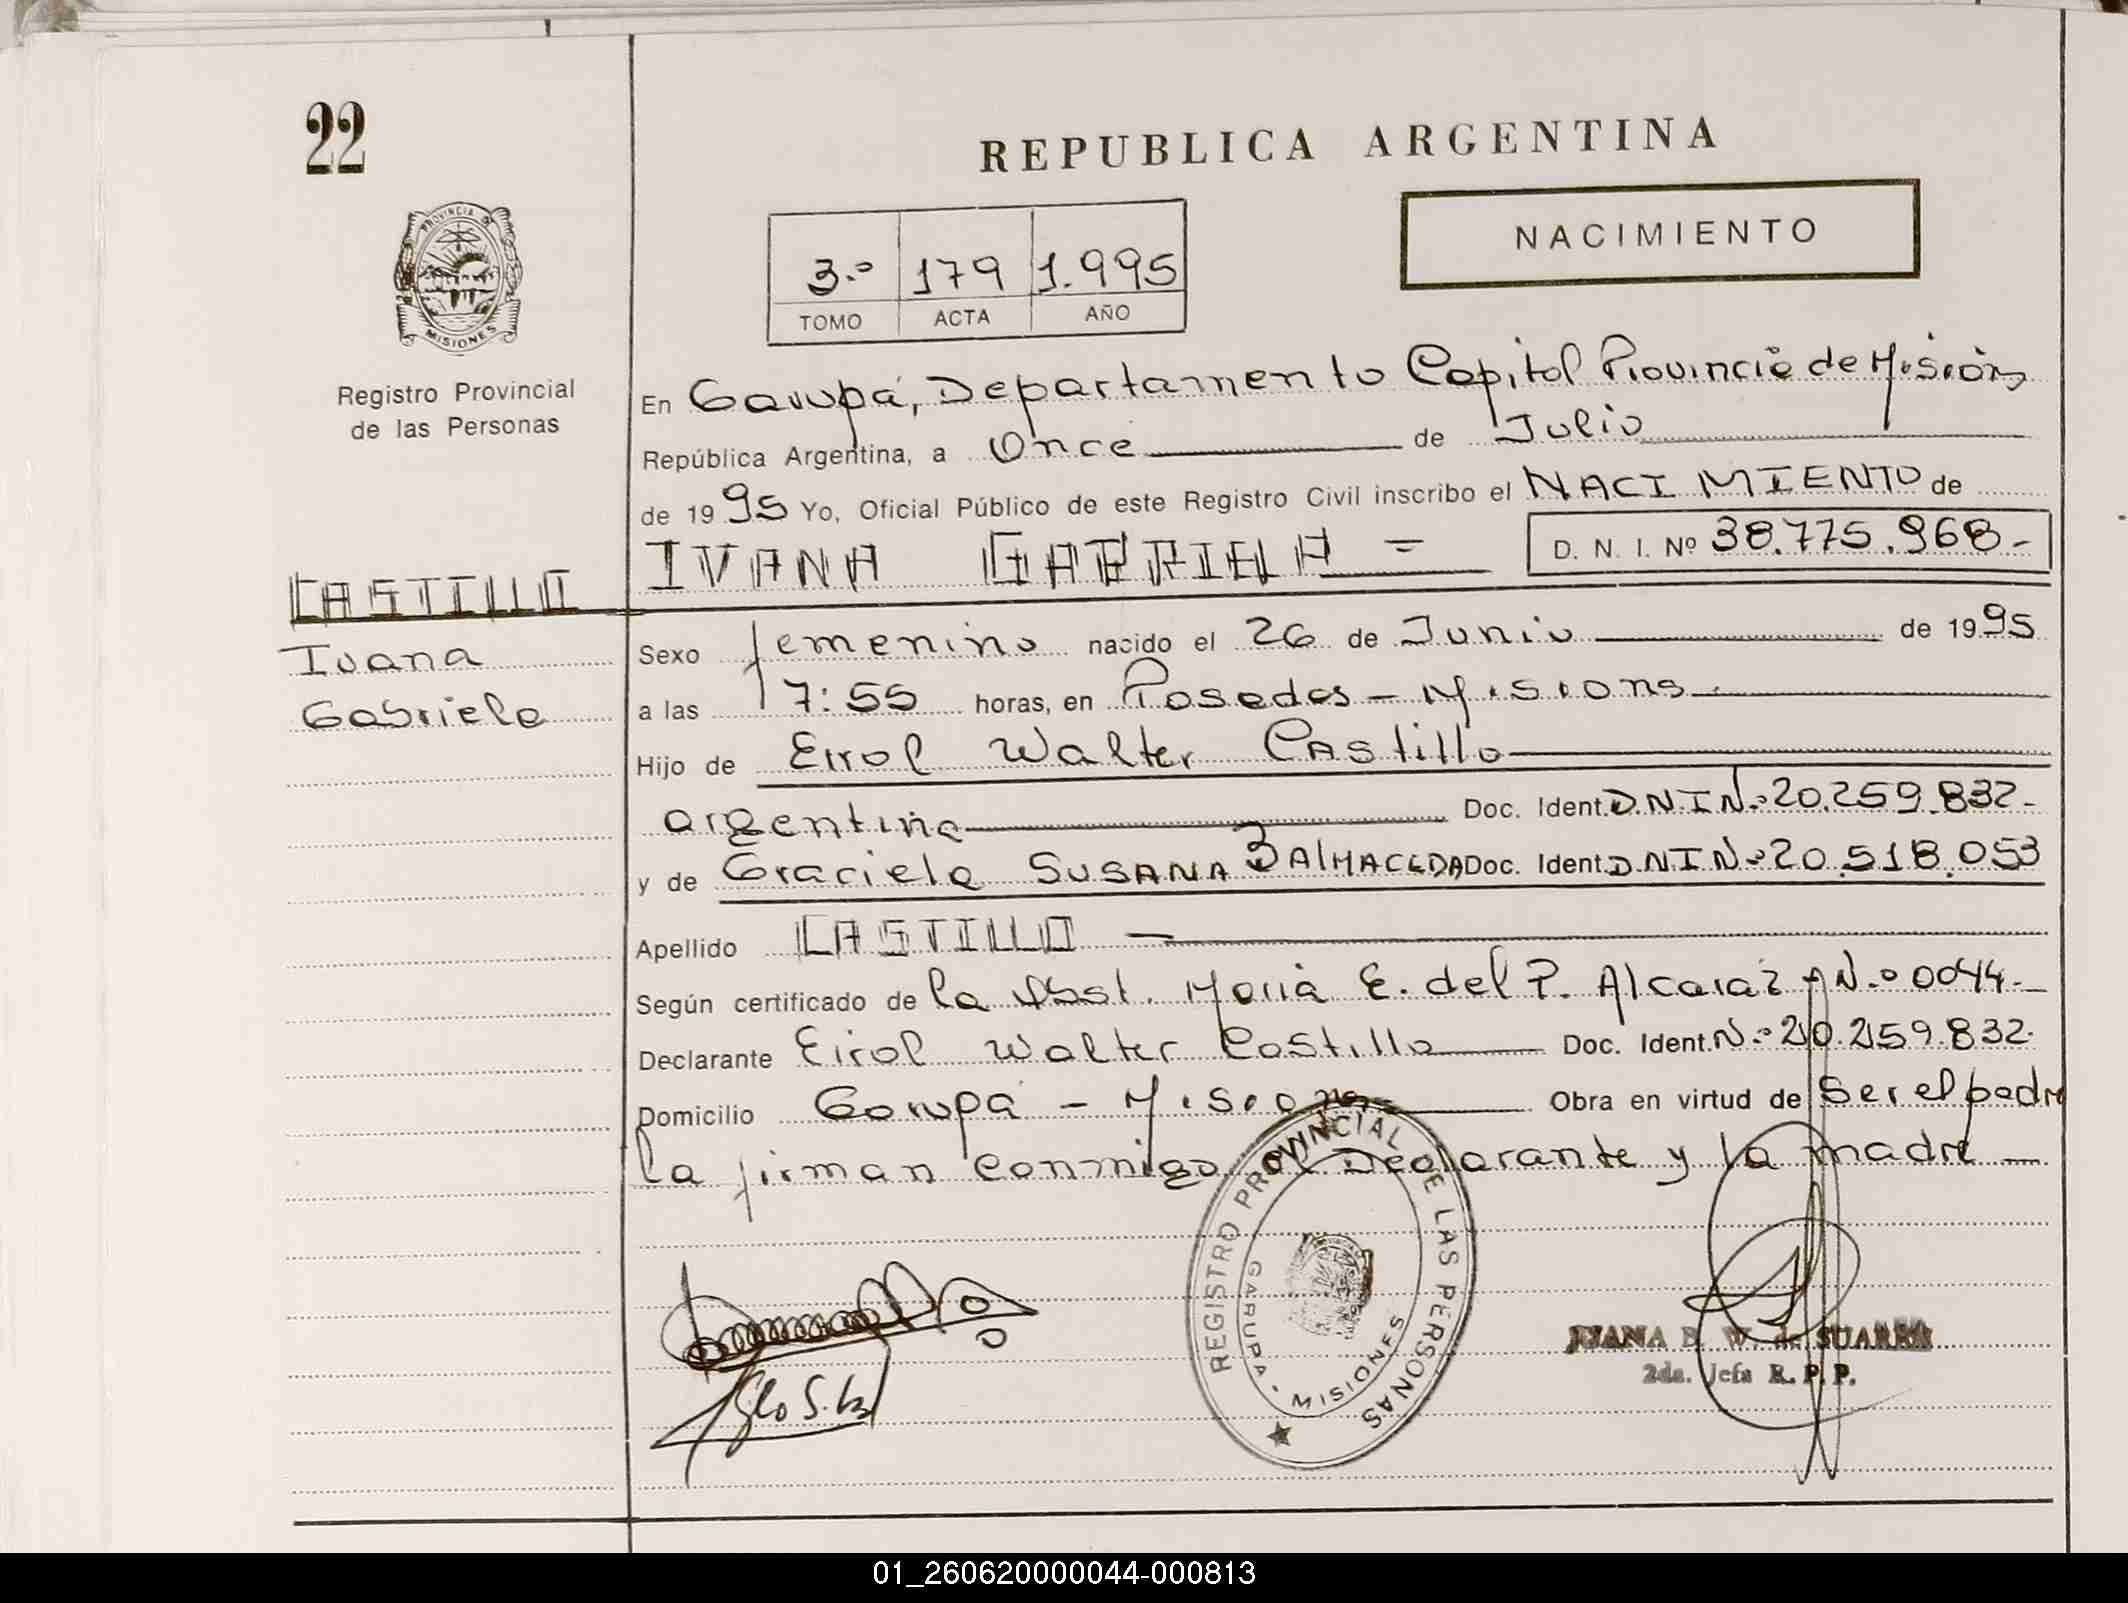 22
REPUBLICA ARGENTINA
PROVINCIA DE MISIONES
NACIMIENTO
3.º 179 1.995
TOMO ACTA AÑO
Registro Provincial
de las Personas
En Garupá, Departamento Capital Provincia de Misiones
República Argentina, a Once de Julio
de 1995 Yo, Oficial Público de este Registro Civil inscribo el NACIMIENTO de
IVANA GABRIELA = D. N. I. Nº 38.775.968-
CASTILLO
Ivana
Gabriela
Sexo femenino nacido el 26 de Junio de 1995
a las 17:55 horas, en Posadas - Misiones
Hijo de Errol Walter Castillo
argentina Doc. Ident. D.N.I Nº 20.259.832-
y de Graciela SUSANA BALMACEDA Doc. Ident. D.N.I Nº 20.518.053
Apellido CASTILLO
Según certificado de la Obst. María E. del P. Alcaraz MN.º 0044.-
Declarante Errol Walter Castillo Doc. Ident. N.º 20.259.832-
Domicilio Garupá - Misiones Obra en virtud de Ser el padre
la firman conmigo el Declarante y la madre
REGISTRO PROVINCIAL DE LAS PERSONAS
GARUPA - MISIONES
JUANA B. W. de SUAREZ
2da. Jefa R. P. P.
01_260620000044-000813